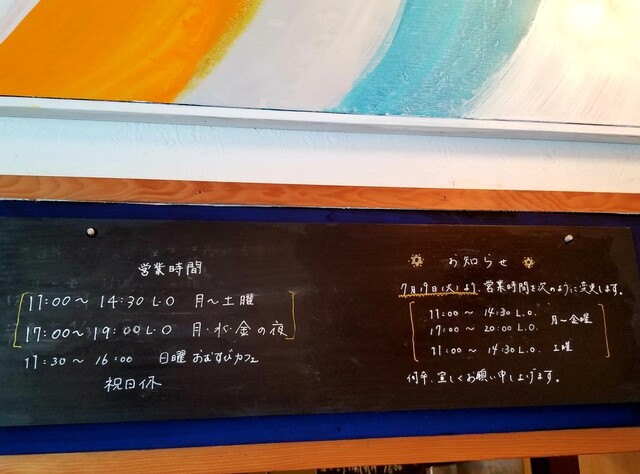 営業時間
11:00〜14:30 L.O 月〜土曜
17:00〜19:00 L.O 月・水・金の夜
11:30〜16:00 日曜 おむすびカフェ
祝日休
お知らせ
7月19日(火)より、営業時間を次のように変更します。
11:00〜14:30 L.O.
17:00〜20:00 L.O.
月〜金曜
11:00〜14:30 L.O. 土曜
何卒、宜しくお願い申し上げます。